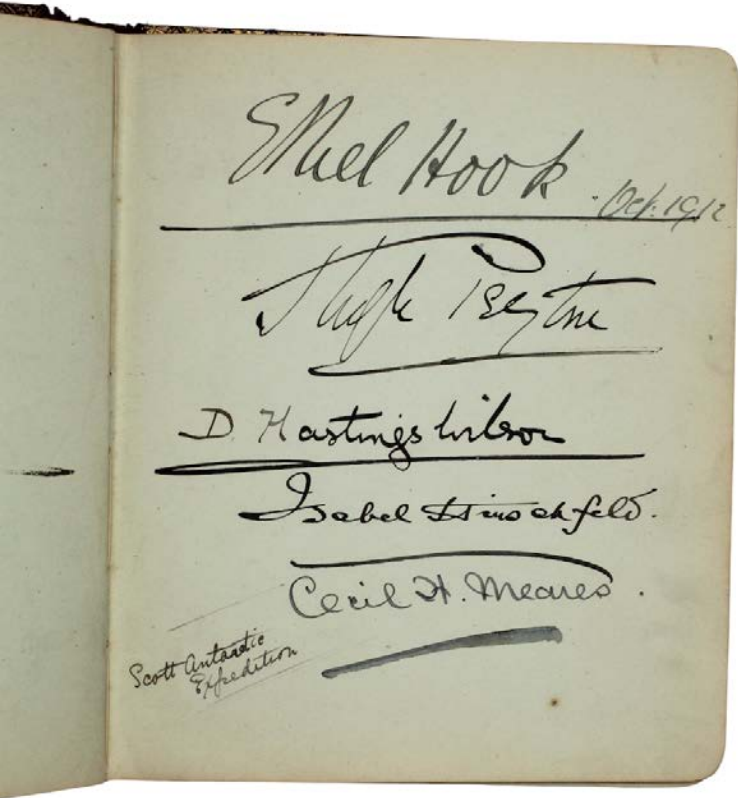 Ethel Hook
Oct. 1912
Hugh Peyton
D Hastings Wilson
Isabel Hirschfeld.
Cecil H. Meares.
Scott Antarctic
Expedition